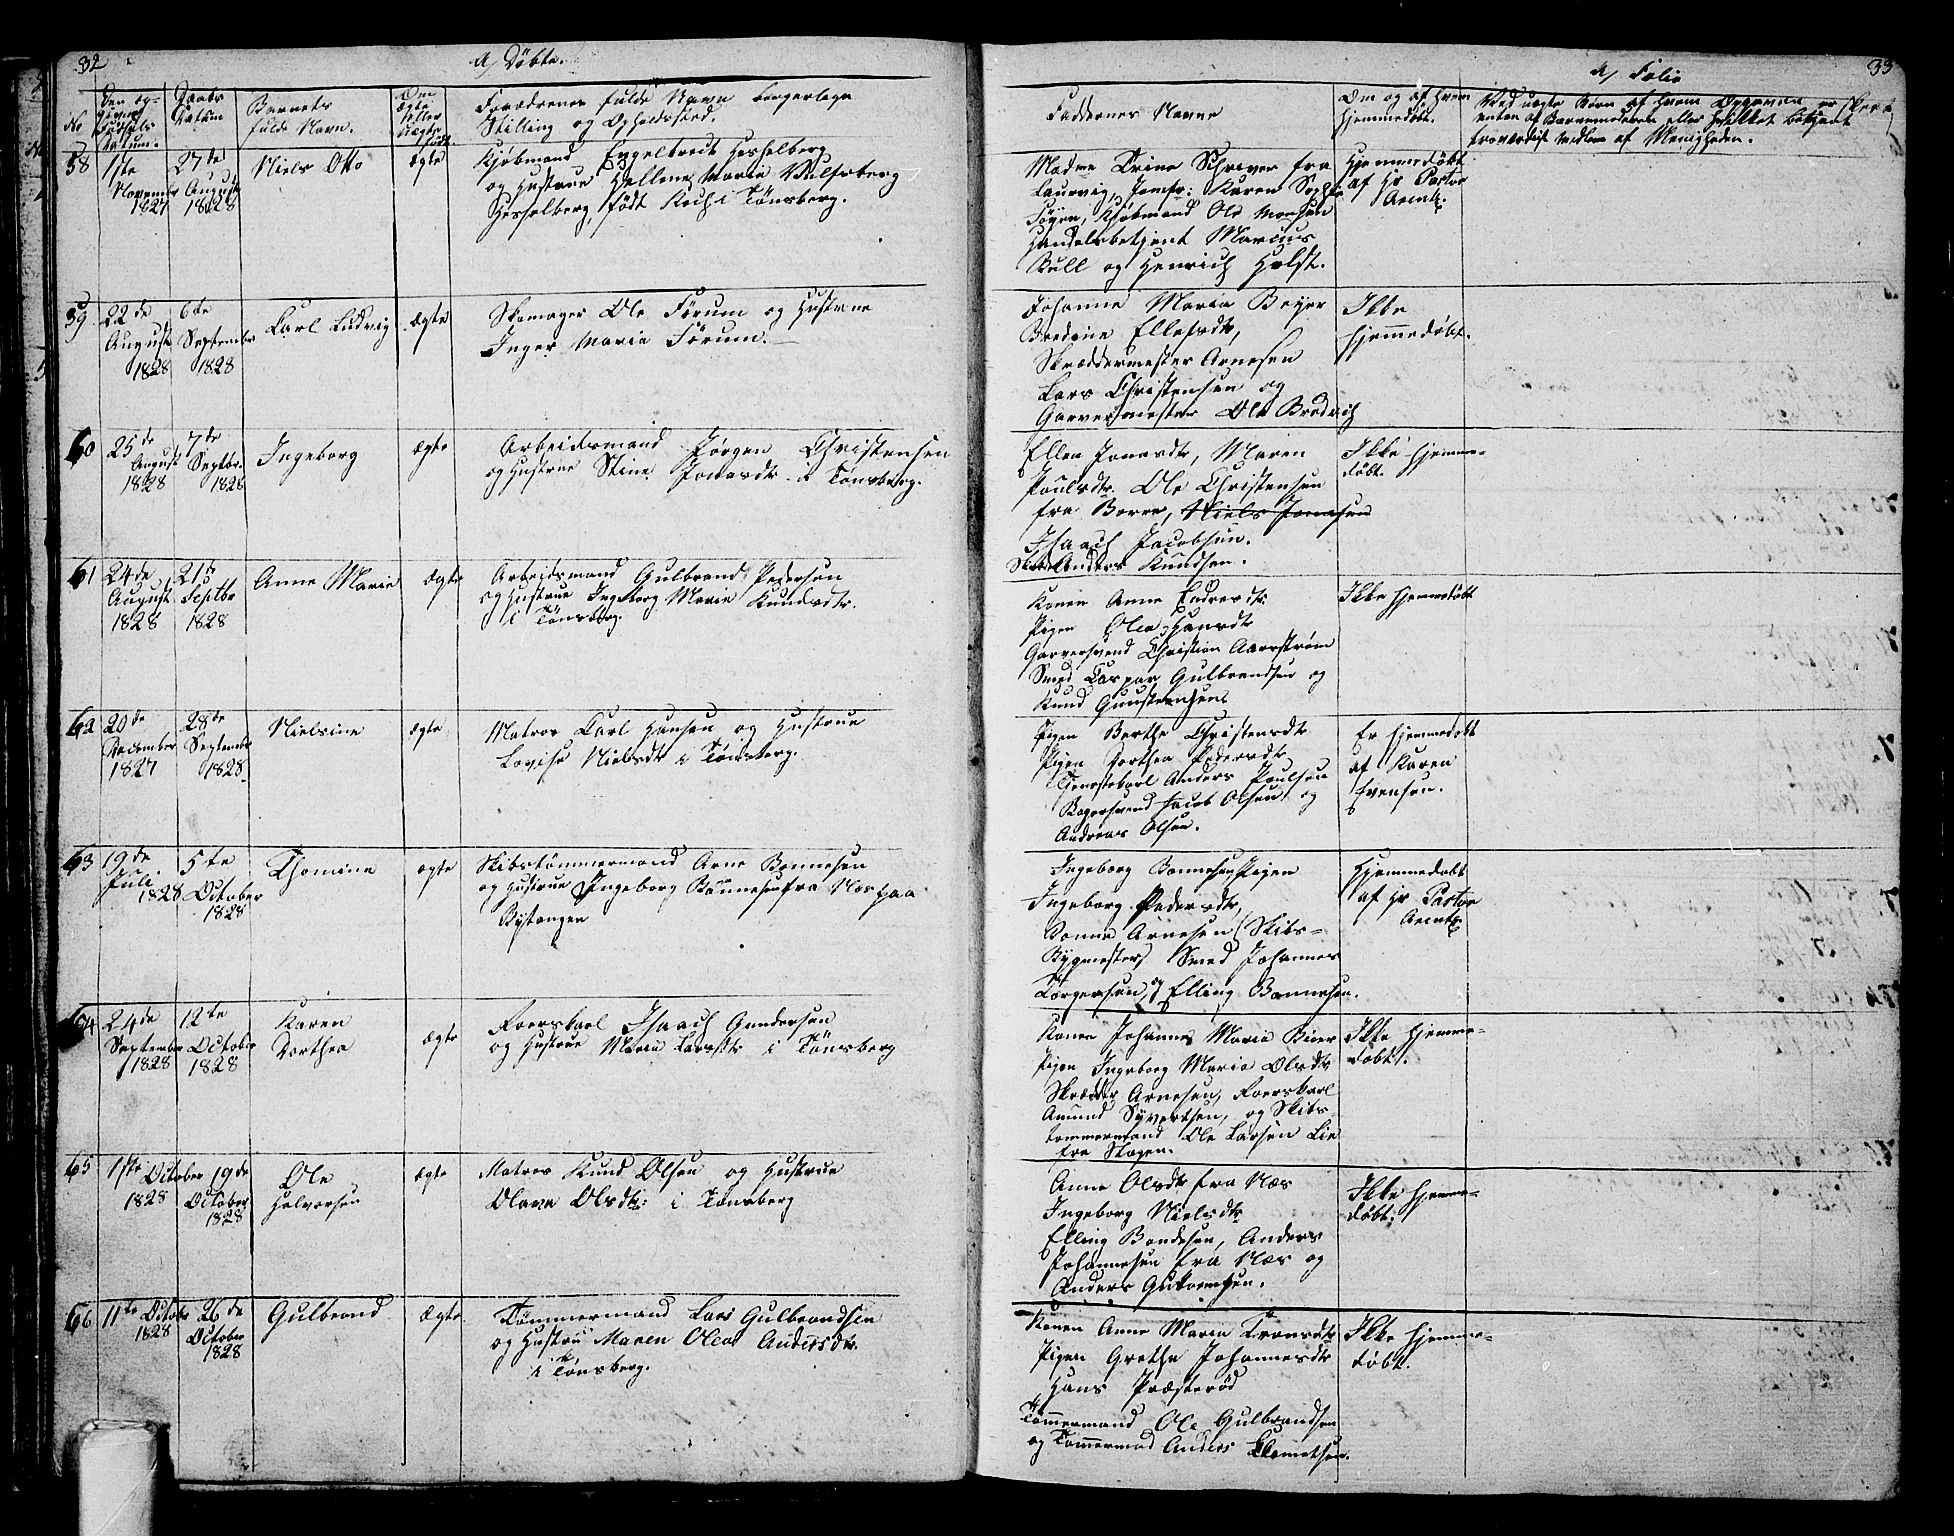 32
a, Døbte.
No
Den op-
givne
Fødsels
Datum.
Daabs
Datum
Barnets
fulde Navn.
Om
ægte
eller
uægte
født
Forældrenes fulde Navn borgerlige
Stilling og Opholdssted.
58
1ste
November
1827
27de
August
1828
Niels Otto
ægte
Kjøbmand Engelbrect Hesselberg
og Hustrue Hellene Maria Wulfsberg
Hesselberg, født Koch i Tønsberg.
59
22de
August
1828
6te
September
1828
Carl Ludvig
ægte
Skomager Ole Førum og Hustrue
Inger Maria Førum.
60
25de
August
1828
7de
Septbr.
1828
Ingeborg
ægte
Arbeidsmand Jørgen Christensen
og Hustrue Stine Jonasdtr i Tønsberg.
61
24de
August
1828
21de
Septbr
1828
Anne Marie
Ægte
Arbeidsmand Gulbrand Pedersen
og Hustrue Ingeborg Marie Knudsdtr.
i Tønsberg.
62
20de
December
1827
28de
September
1828
Nielsine
ægte
Matros Carl Hansen og Hustrue
Lovise Nielsdtr i Tønsberg.
63
19de
Juli
1828
5te
October
1828
Thomine
ægte
Skibstømmermand Arne Bonnesen
og Hustrue Ingeborg Bonnesen fra Næs paa
Bystangen
64
24de
September
1828
12te
October
1828
Karen
Dorthea
Ægte
Roerskarl Isaach Gundersen
og Hustrue Maria Larsdtr i Tønsberg
65
1ste October
1828
19de
October
1828
Ole
Halvorsen
ægte
Matros Knud Olsen og Hustrue
Olava Olsdtr: i Tønsberg
66
11te October
1828
26de
October
1828
Gulbrand
Ægte
Tømmermand Lars Gulbrandsen
og Hustru Maren Olea Andersdtr.
i Tønsberg.
a, Folio
33
Faddernes Navne
Om og af hvem
hjemmedøbt.
Ved uægte Børn af hvem Opgaven er skeet
enten af Barnemoderen eller hvilket bekjent
troværdigt Medlem af Menigheden.
Madme Trine Schrever fra
Laurvig, Jomfr: Karen Sophie
Føyen, Kjøbmand Ole Monsen
Handelsbetjent Marcus
Bull og Henrich Holst.
Hjemmedøbt
af Hr Pastor
Arentz.
Johanne Maria Beyer
Bredine Ellefsdtr,
Skræddermester Arnesen
Lars Christensen og
Garvermester Ole Brodrich
Ikke
hjemmedøbt.
Ellen Jonasdtr, Maren
Poulsdtr. Ole Christensen
fra Borre, Niels Jonassen
Isaach Jacobsen.
Anders Knudsen.
Ikke hjemme-
døbt.
Konen Anne Endresdtr.
Pigen Olea Hansdtr
Garversvend Christian Aarstrøm
Smed Caspar Gulbrandsen og
Knud Gunstensen
Ikke hjemmedøbt
Pigen Berthe Christensdtr
Pigen Dorthea Pedersdtr
Tjenestekarl Anders Poulsen
Bagersvend Jacob Olsen og
Andreas Olsen.
Er hjemmedøbt
af Karen
Evensen.
Ingeborg Bonnesen, Pigen
Ingeborg Pedersdtr,
Bonne Arnesen (Skibs-
Bygmester) Smed Johannes
Torgersen, og Elling Bonnesen.
Hjemmedøbt
af Hr Pastor
Arentz
Konen Johannes Maria Beier
Pigen Ingeborg Maria Olsdtr
Skrædder Arnesen, Roerskarl
Amund Syvertsen, og Skibs-
tømmermand Ole Larsen Lie
fra Skogen.
Ikke hjemme-
døbt.
Anne Olsdtr fra Næs
Ingeborg Nielsdtr
Elling Bondesen, Anders
Johannesen fra Næs og
Anders Guttormsen.
Ikke hjemme-
døbt.
Konen Anne Maria Tronsdtr
Pigen Grethe Johannesdtr
Hans Præsterød
Tømmermand Ole Gulbrandsen
og Tømmermd Anders Clemetsen.
Ikke hjemme-
døbt.